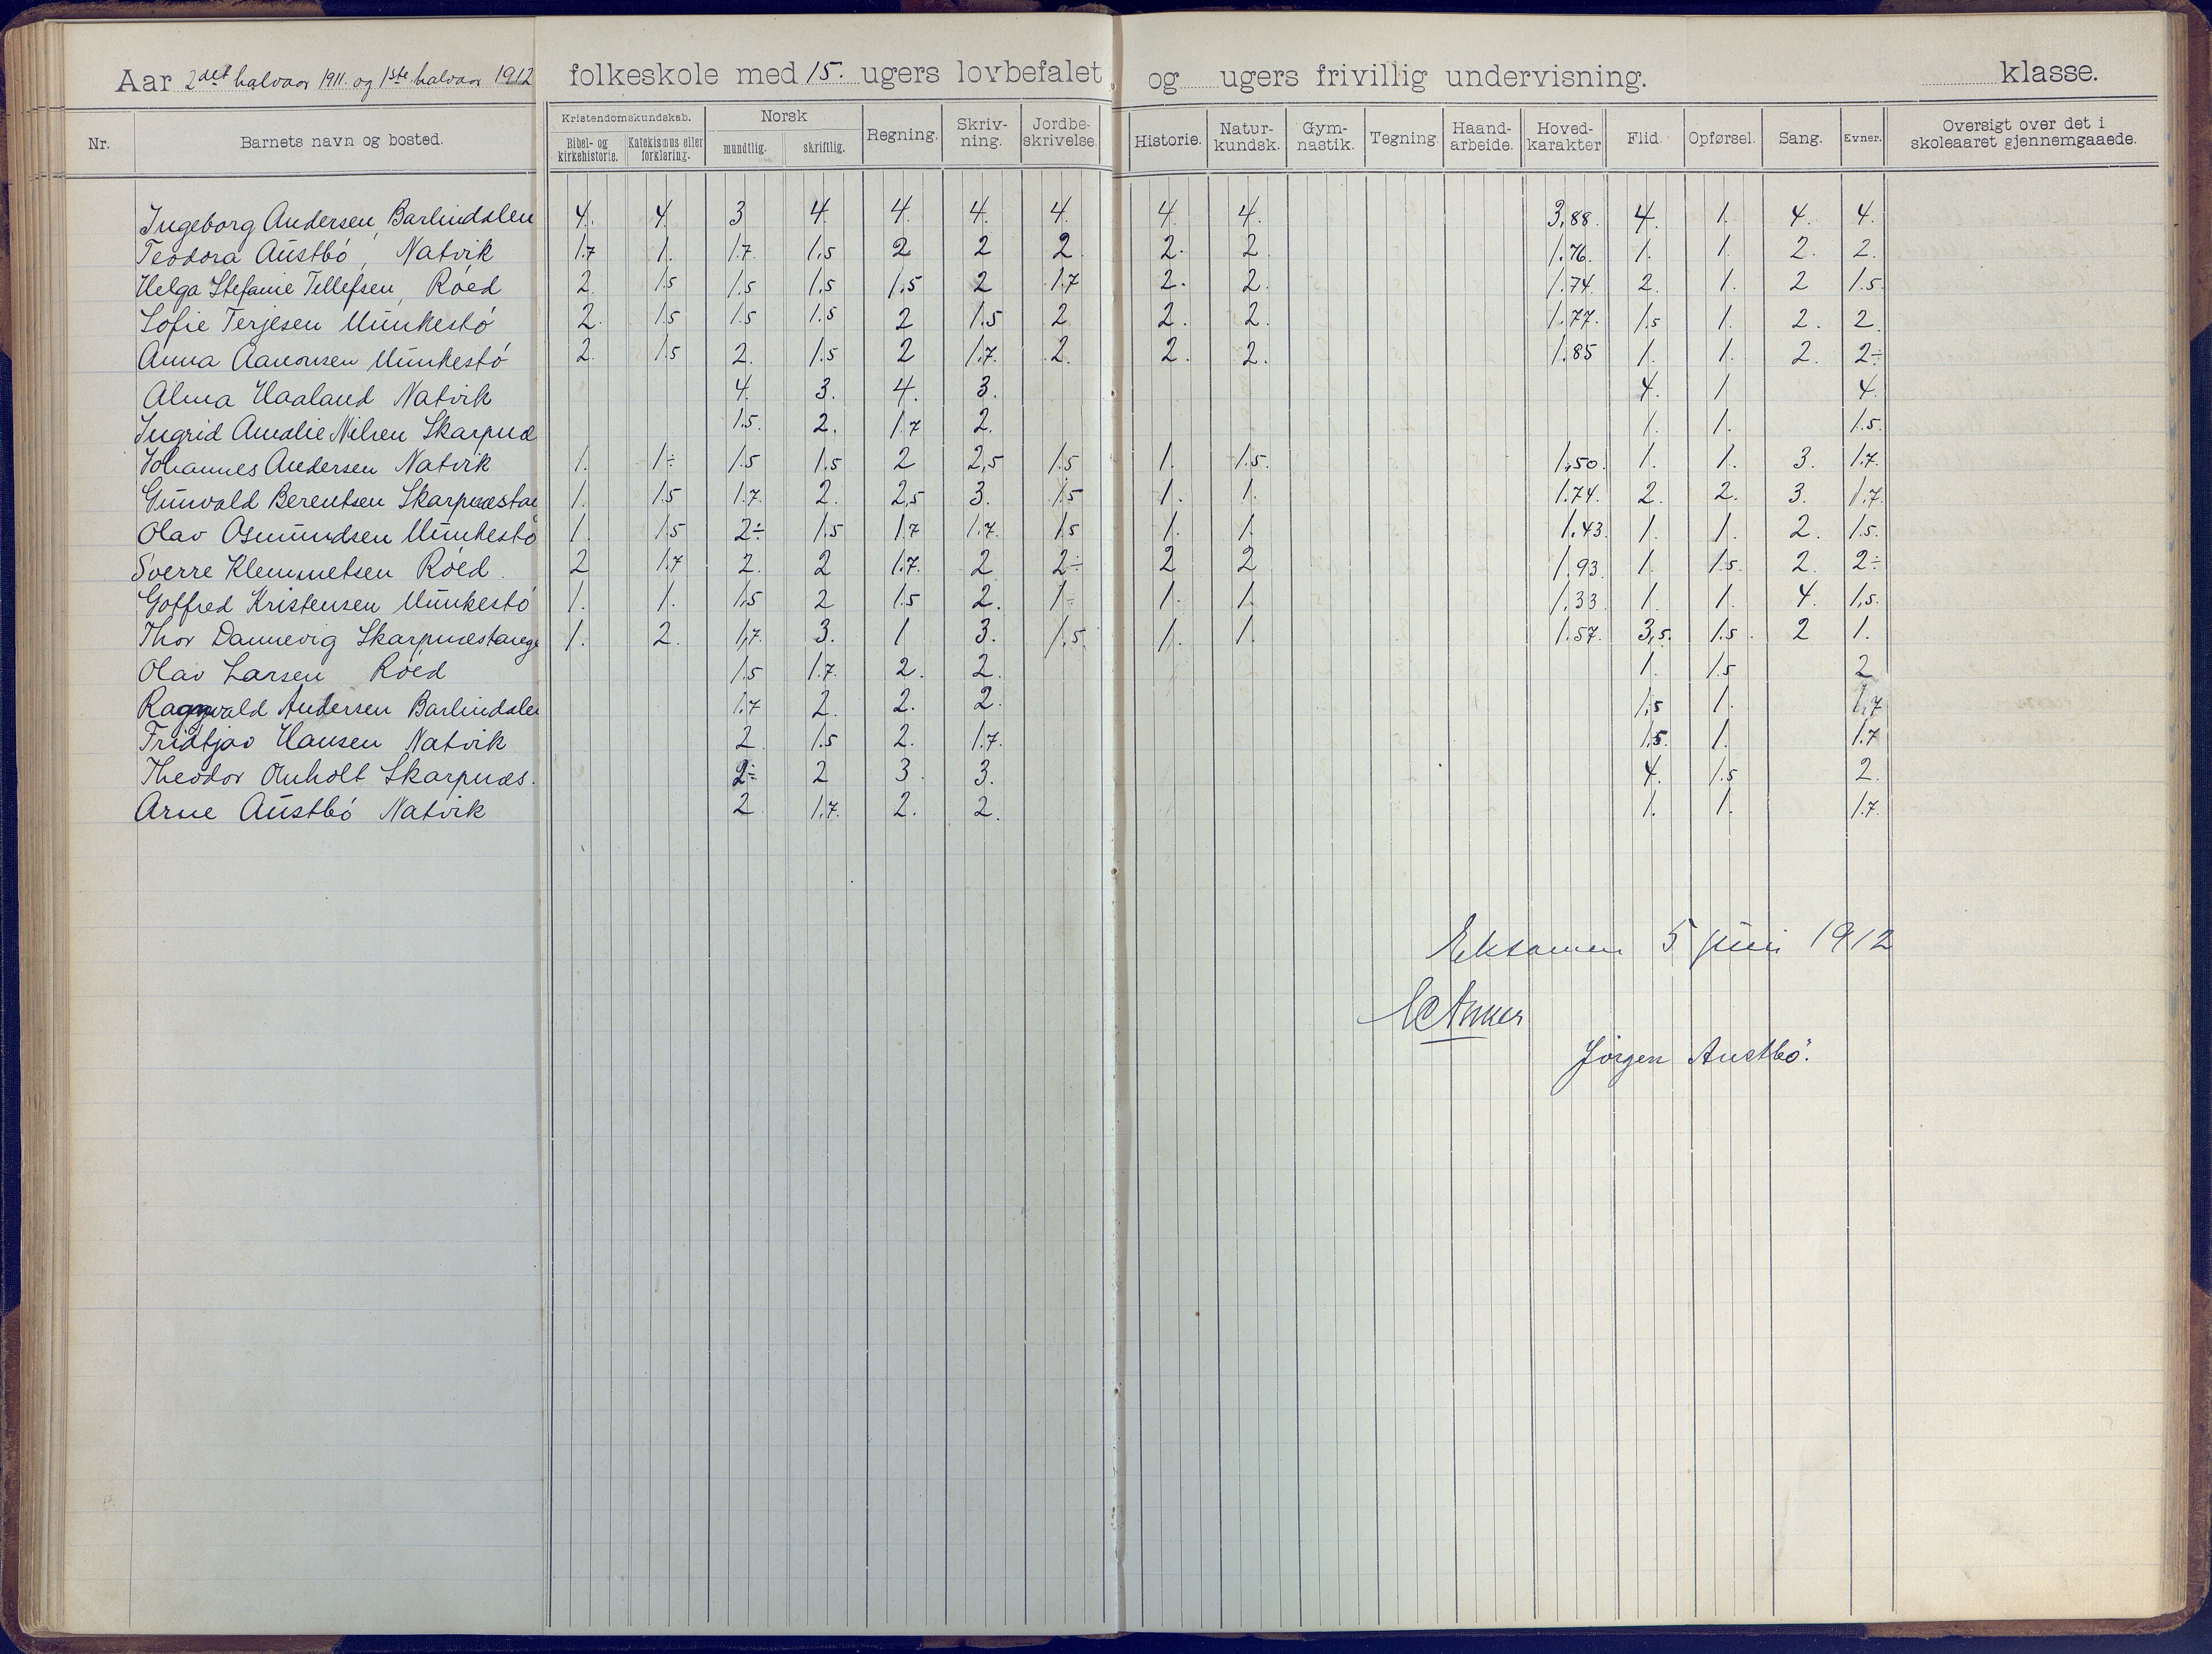 Aar 2det halvaar 1911. og 1ste halvaar 1912 folkeskole med 15. ugers lovbefalet og ugers frivillig undervisning. klasse.
Nr. Barnets navn og bosted. Kristendomskundskab. Bibel- og kirkehistorie. Katekismus eller forklaring. Norsk mundtlig. skriftlig. Regning. Skriv-ning. Jordbe-skrivelse. Historie. Natur-kundsk. Gym-nastik. Tegning. Haand-arbeide. Hoved-karakter Flid. Opførsel. Sang. Evner. Oversigt over det i skoleaaret gjennemgaaede.
Ingeborg Andersen, Barlindalen 4. 4. 3 4. 4. 4. 4. 4. 4. 3,88. 4. 1. 4. 4.
Teodora Austbó, Natvik 1.7 1. 1.7. 1,5 2 2 2. 2. 2. 1.76. 1. 1. 2. 2.
Helga Stefanie Tellefsen, Róed 2. 1.5 1.5 1,5 1,5 2 1.7 2. 2. 1.74. 2. 1. 2 1.5.
Sofie Terjesen Munkestó 2. 1.5 1.5 1.5 2 1.5 2 2. 2. 1.77. 1.5 1. 2. 2.
Anna Aanonsen Munkestó 2. 1.5 2. 1.5 2 1.7. 2. 2. 2. 1.85 1. 1. 2. 2÷
Alma Haaland Natvik 4. 3. 4. 3. 4. 1. 4.
Ingrid Amalie Nilsen Skarpnæ 1.5. 2. 1.7 2. 1. 1. 1.5.
Johannes Andersen Natvik 1. 1÷ 1.5 1.5 2 2,5 1.5 1. 1.5. 1.50. 1. 1. 3. 1.7.
Gunvald Berentsen Skarpnæstan 1. 1.5 1.7. 2. 2,5 3. 1.5 1. 1. 1.74. 2. 2. 3. 1.7.
Olav Osmundsen Munkestó 1. 1.5 2÷ 1.5 1.7 1.7. 1.5 1. 1. 1.43. 1. 1. 2. 1.5.
Sverre Klemmetsen Róed. 2 1.7 2. 2 1.7. 2 2÷ 2 2 1,93. 1. 1.5. 2. 2÷
Gotfred Kristensen Munkestó 1. 1. 1,5 2 1.5 2. 1÷ 1. 1. 1,33. 1. 1. 4. 1,5.
Thor Dannevig Skarpnæstange 1. 2. 1,7. 3. 1 3. 1,5. 1. 1. 1.57. 3,5. 1.5. 2 1.
Olav Larsen Róed 1.5 1.7. 2. 2. 1. 1.5 2
Ragnvald Andersen Barlindalen 1.7 2. 2. 2. 1,5 1. 1,7
Fridtjav Hansen Natvik 2. 1.5 2. 1.7. 1.5. 1. 1.7
Theodor Omholt Skarpnæs. 2÷ 2 3. 3. 4. 1.5 2.
Arne Austbó Natvik 2 1,7. 2. 2. 1. 1. 1.7.
Eksamen 5 juni 1912
Jörgen Austbö.